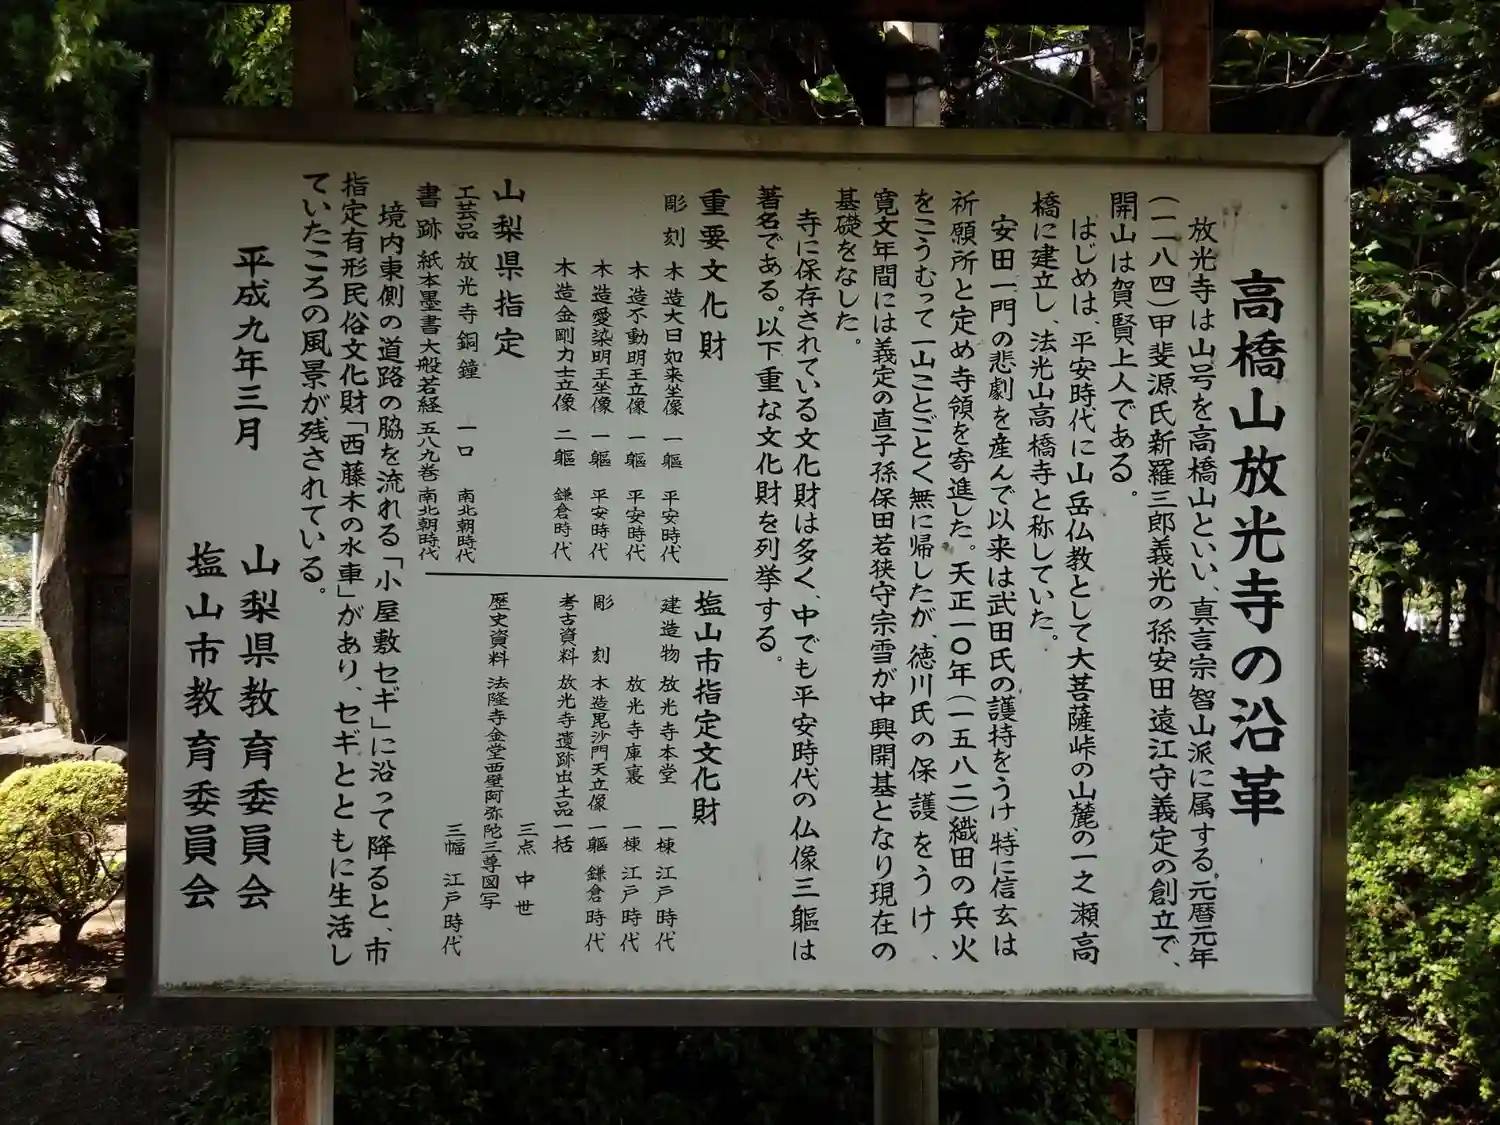 高橋山放光寺の沿革
放光寺は山号を高橋山といい、真言宗智山派に属する。元暦元年
(一一八四)甲斐源氏新羅三郎義光の孫安田遠江守義定の創立で、
開山は賀賢上人である。
はじめは、平安時代に山岳仏教として大菩薩峠の山麓の一之瀬高
橋に建立し、法光山高橋寺と称していた。
安田一門の悲劇を産んで以来は武田氏の護持をうけ、特に信玄は
祈願所と定め寺領を寄進した。天正一〇年(一五八二)織田の兵火
をこうむって一山ことごとく無に帰したが、徳川氏の保護をうけ、
寛文年間には義定の直子孫保田若狭守宗雪が中興開基となり現在の
基礎をなした。
寺に保存されている文化財は多く、中でも平安時代の仏像三軀は
著名である。以下重な文化財を列挙する。
重要文化財
彫刻 木造大日如来坐像 一軀 平安時代
木造不動明王立像 一軀 平安時代
木造愛染明王坐像 一軀 平安時代
木造金剛力士立像 二軀 鎌倉時代
山梨県指定
工芸品 放光寺銅鐘 一口 南北朝時代
書跡 紙本墨書大般若経 五八九巻 南北朝時代
塩山市指定文化財
建造物 放光寺本堂 一棟 江戸時代
放光寺庫裏 一棟 江戸時代
彫刻 木造毘沙門天立像 一軀 鎌倉時代
考古資料 放光寺遺跡出土品 一括
三点 中世
歴史資料 法隆寺金堂西壁阿弥陀三尊図写
三幅 江戸時代
境内東側の道路の脇を流れる「小屋敷セギ」に沿って降ると、市
指定有形民俗文化財「西藤木の水車」があり、セギとともに生活し
ていたころの風景が残されている。
平成九年三月
山梨県教育委員会
塩山市教育委員会